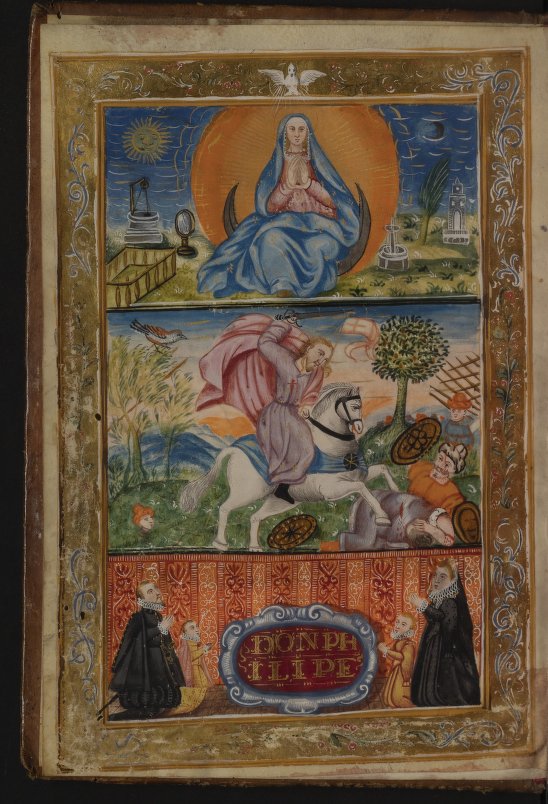 DON PH
ILIPE